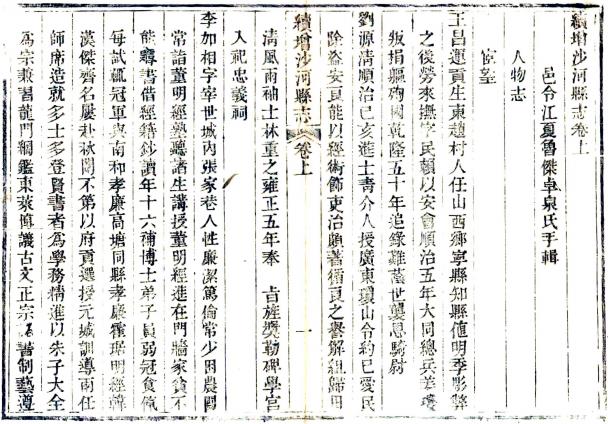 續增沙河縣志卷上
邑令江夏魯傑卓泉氏手輯
人物志
宦望
王昌運貢生東趙村人任山西鄉寧縣知縣值明季彫弊
之後勞來撫字民賴以安會順治五年大同總兵姜瓖
叛捐軀殉國乾隆五十年追錄難蔭世襲恩騎尉
劉源清順治己亥進士壽介人授廣東瓊山令約己愛民
除盜安良能以經術飾吏治頗著循良之譽解組歸田
清風兩袖士林重之雍正五年奉 旨旌獎勒碑學宮
入祀忠義祠
續增沙河縣志 卷上 一
李如相字宰世城內張家巷人性廉潔篤倫常少困農圃
常詣董明經塾聽諸生講授董明經進在門牆家貧不
能購書借經籍鈔讀年十六補博士弟子員弱冠食餼
每試輒冠軍與南和孝廉高塘同縣孝廉霍璐明經韓
漢傑齊名屢赴秋闈不第以府貢選授元城訓導兩任
師席造就多士多登賢書者為學務精進以朱子大全
為宗兼習龍門綱鑑東萊博議古文正宗 著制藝遵